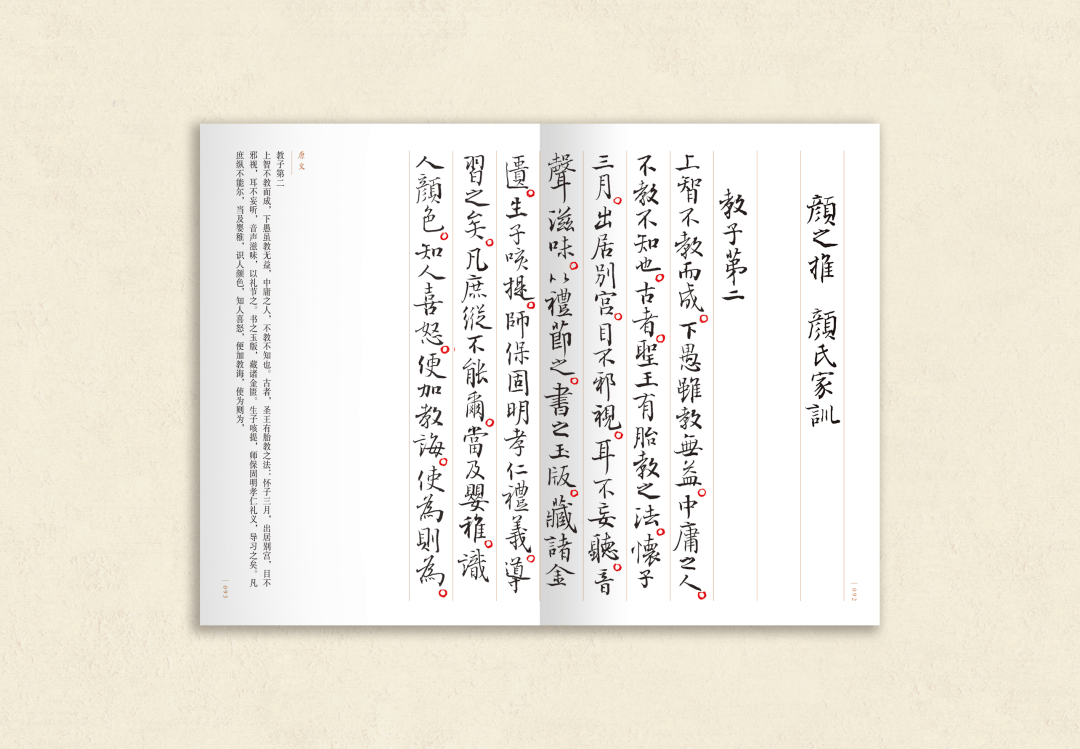 顏之推 顏氏家訓
教子第二
上智不教而成。下愚雖教無益。中庸之人。
不教不知也。古者。聖王有胎教之法。懷子
三月。出居別宮。目不邪視。耳不妄聽。音
聲滋味。以禮節之。書之玉版。藏諸金
匱。生子咳提。師保固明孝仁禮義。導
習之矣。凡庶縱不能爾。當及嬰稚。識
人顏色。知人喜怒。便加教誨。使為則為。
092
原文
教子第二
上智不教而成，下愚虽教无益，中庸之人，不教不知也。古者，圣王有胎教之法：怀子三月，出居别宫，目不
邪视，耳不妄听，音声滋味，以礼节之。书之玉版，藏诸金匮。生子咳提，师保固明孝仁礼义，导习之矣。凡
庶纵不能尔，当及婴稚，识人颜色，知人喜怒，便加教诲，使为则为，
093